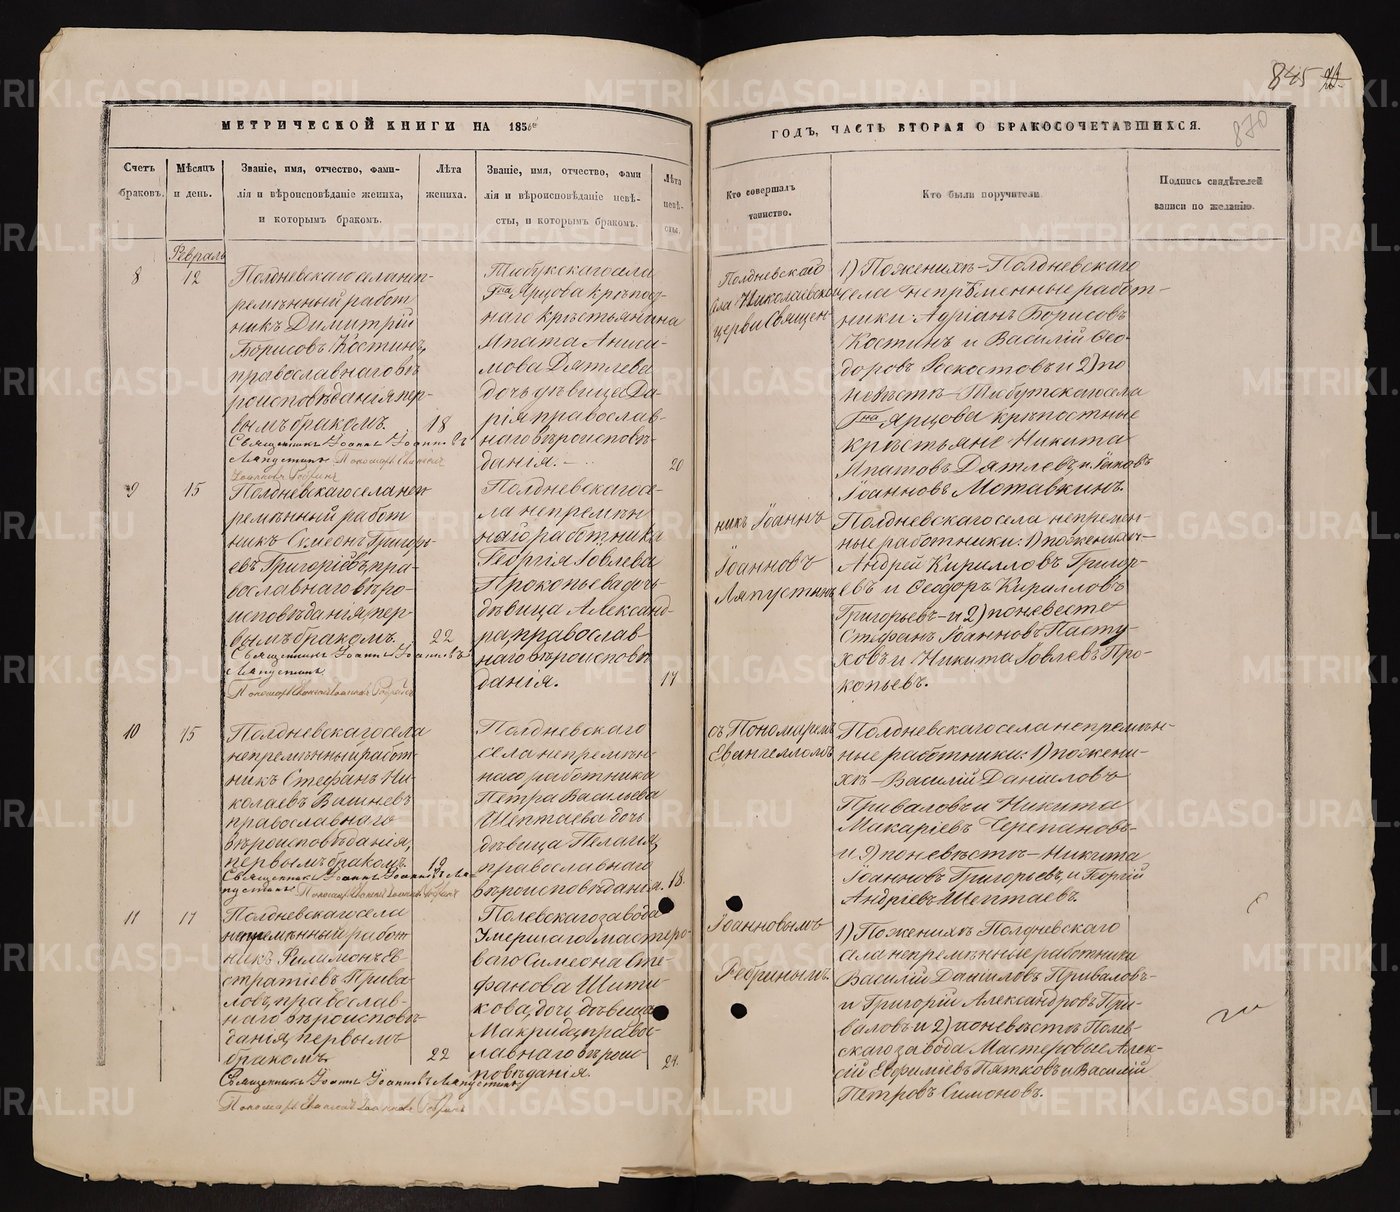 845
870
МЕТРИЧЕСКОЙ КНИГИ НА 1856
ГОДЪ, ЧАСТЬ ВТОРАЯ О БРАКОСОЧЕТАВШИХСЯ.
Счетъ браковъ.
Мѣсяцъ и день.
Званіе, имя, отчество, фами-
лія и вѣроисповѣданіе жениха,
и которымъ бракомъ.
Лѣта жениха.
Званіе, имя, отчество, фами
лія и вѣроисповѣданіе невѣ-
сты, и которымъ бракомъ.
Лѣта невѣ- сты.
Кто совершалъ
таинство.
Кто были поручители.
Подпись свидѣтелей
записи по желанію.
Февраль
8
12
Полдневскаго села неп-
ремѣнный работ
никъ Димитрій
Борисовъ Костинъ,
православнаго вѣ
роисповѣданія, пер-
вымъ бракомъ.
18
Священникъ Іоаннъ Іоанновъ
Ляпустинъ
Тюбукскаго села
Гна Ярцова крѣпос-
наго крѣстьянина
Ипата Аниси-
мова Дятлева
дочь дѣвица Да-
рія православ-
наго вѣроисповѣ-
данія.
20
Полдневскаго
села Николаевской
церкви Священ-
1) По женихѣ - Полдневскаго
села непрѣменные работ-
ники Адріанъ Борисовъ
Костинъ и Василій Ѳео-
доровъ Роскостовъ и 2) по
невѣстѣ - Тюбукскаго села
Гна Ярцова крѣпостные
крѣстьяне Никита
Ипатовъ Дятлевъ и Іаковъ
Іоанновъ Мотавкинъ.
9
15
Полдневскаго села неп
ремѣнный работ
никъ Симеонъ Григорь-
евъ Григорьевъ, пра-
вославнаго вѣро-
исповѣданія, пер-
вымъ бракомъ.
22
Священникъ Іоаннъ Іоанновъ
Ляпустинъ
Полдневскаго се-
ла непремѣн
наго работника
Георгія Іовлева
Прокопьева дочь
дѣвица Александ-
ра, православ-
наго вѣроисповѣ
данія.
17
никъ Іоаннъ
Іоанновъ
Ляпустинъ
Полдневскаго села непремен-
ные работники: 1) по женихѣ -
Андрей Кирилловъ Григорь-
евъ и Ѳеодоръ Кирилловъ
Григорьевъ - и 2) по невестѣ
Стефанъ Іоанновъ Пасту-
ховъ и Никита Іовлевъ Про-
копьевъ.
10
15
Полдневскаго села
непремѣнный работ
никъ Стефанъ Ни-
колаевъ Вишневъ
православнаго
вѣроисповѣданія,
первымъ бракомъ.
19
Священникъ Іоаннъ Іоанновъ Ля-
пустинъ
Полдневскаго
села непремѣн-
наго работника
Петра Васильева
Шептаева дочь
дѣвица Пелагія,
православнаго
вѣроисповѣданія.
18
съ Пономаремъ
Евангелломъ
Полдневскаго села непремѣн-
ные работники: 1) по жени-
хѣ - Василій Даниловъ
Приваловъ и Никита
Макаріевъ Черепановъ
и 2) по невѣстѣ - Никита
Іоанновъ Григорьевъ, и Георгій
Андріевъ Шептаевъ.
11
17
Полдневскаго села
непремѣнный работ
никъ Филимонъ Ев
стратіевъ Прива
ловъ, православ-
наго вѣроисповѣ
данія, первымъ
бракомъ.
22
Священникъ Іоаннъ Іоанновъ Ляпустинъ
Полевскаго завода
Умершаго мастеро-
ваго Симеона Сте-
фанова Шити-
кова, дочь дѣвица
Макрида, правос-
лавнаго вѣрои-
повѣданія.
21.
Іоанновымъ
Ребринымъ.
1) По женихѣ Полдневскаго
села непремѣнные работники
Василій Даниловъ Приваловъ-
и Григорій Александровъ При-
валовъ и 2) по невѣстѣ Полев-
скаго завода Мастеровые Алек-
сій Евфиміевъ Пятковъ и Василій
Петровъ Симоновъ.
METRIKI.GASO-URAL.RU